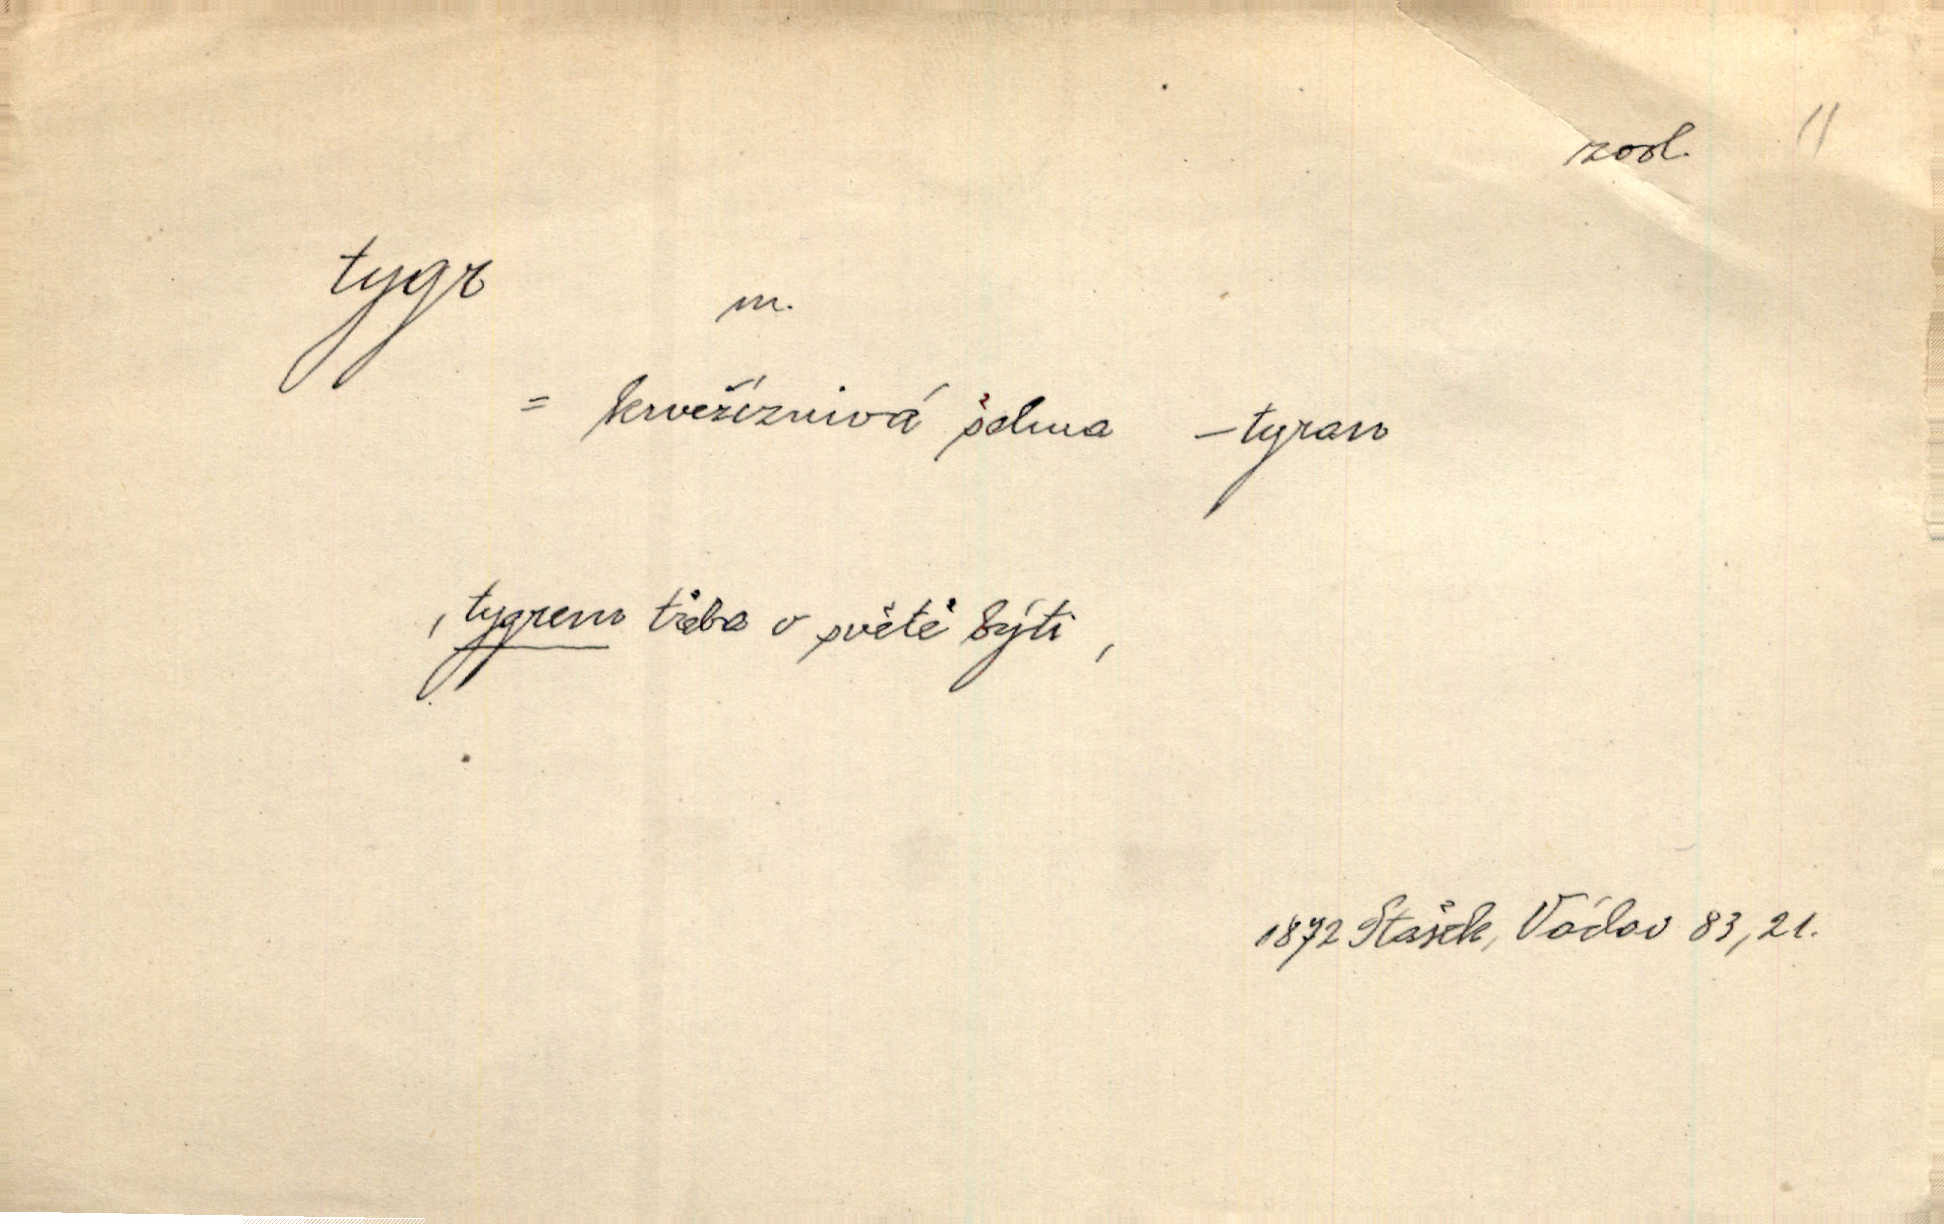 zool. 11
tygr m.
= krvežíznivá šelma – tyran
, tygrem třeba v světě býti ,
1872 Stašek, Václav 83, 21.